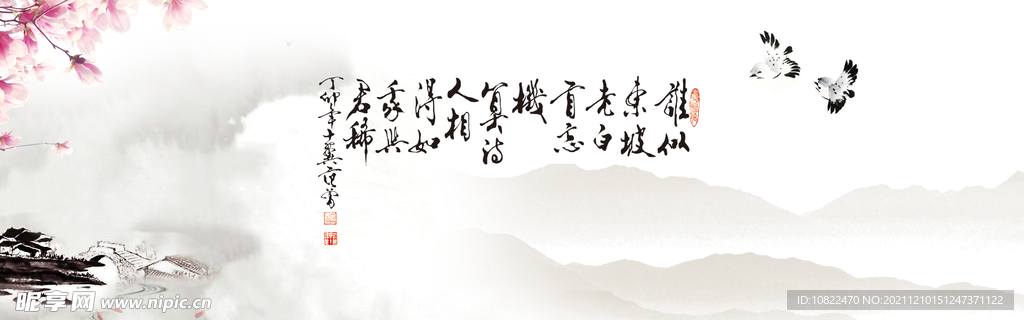 誰似
東坡
老白
首忘
機
算詩
人相
得如
我與
君稀
丁卯年十翼范曾
昵享网 www.nipic.cn
ID:10822470 NO:20211210151247371122